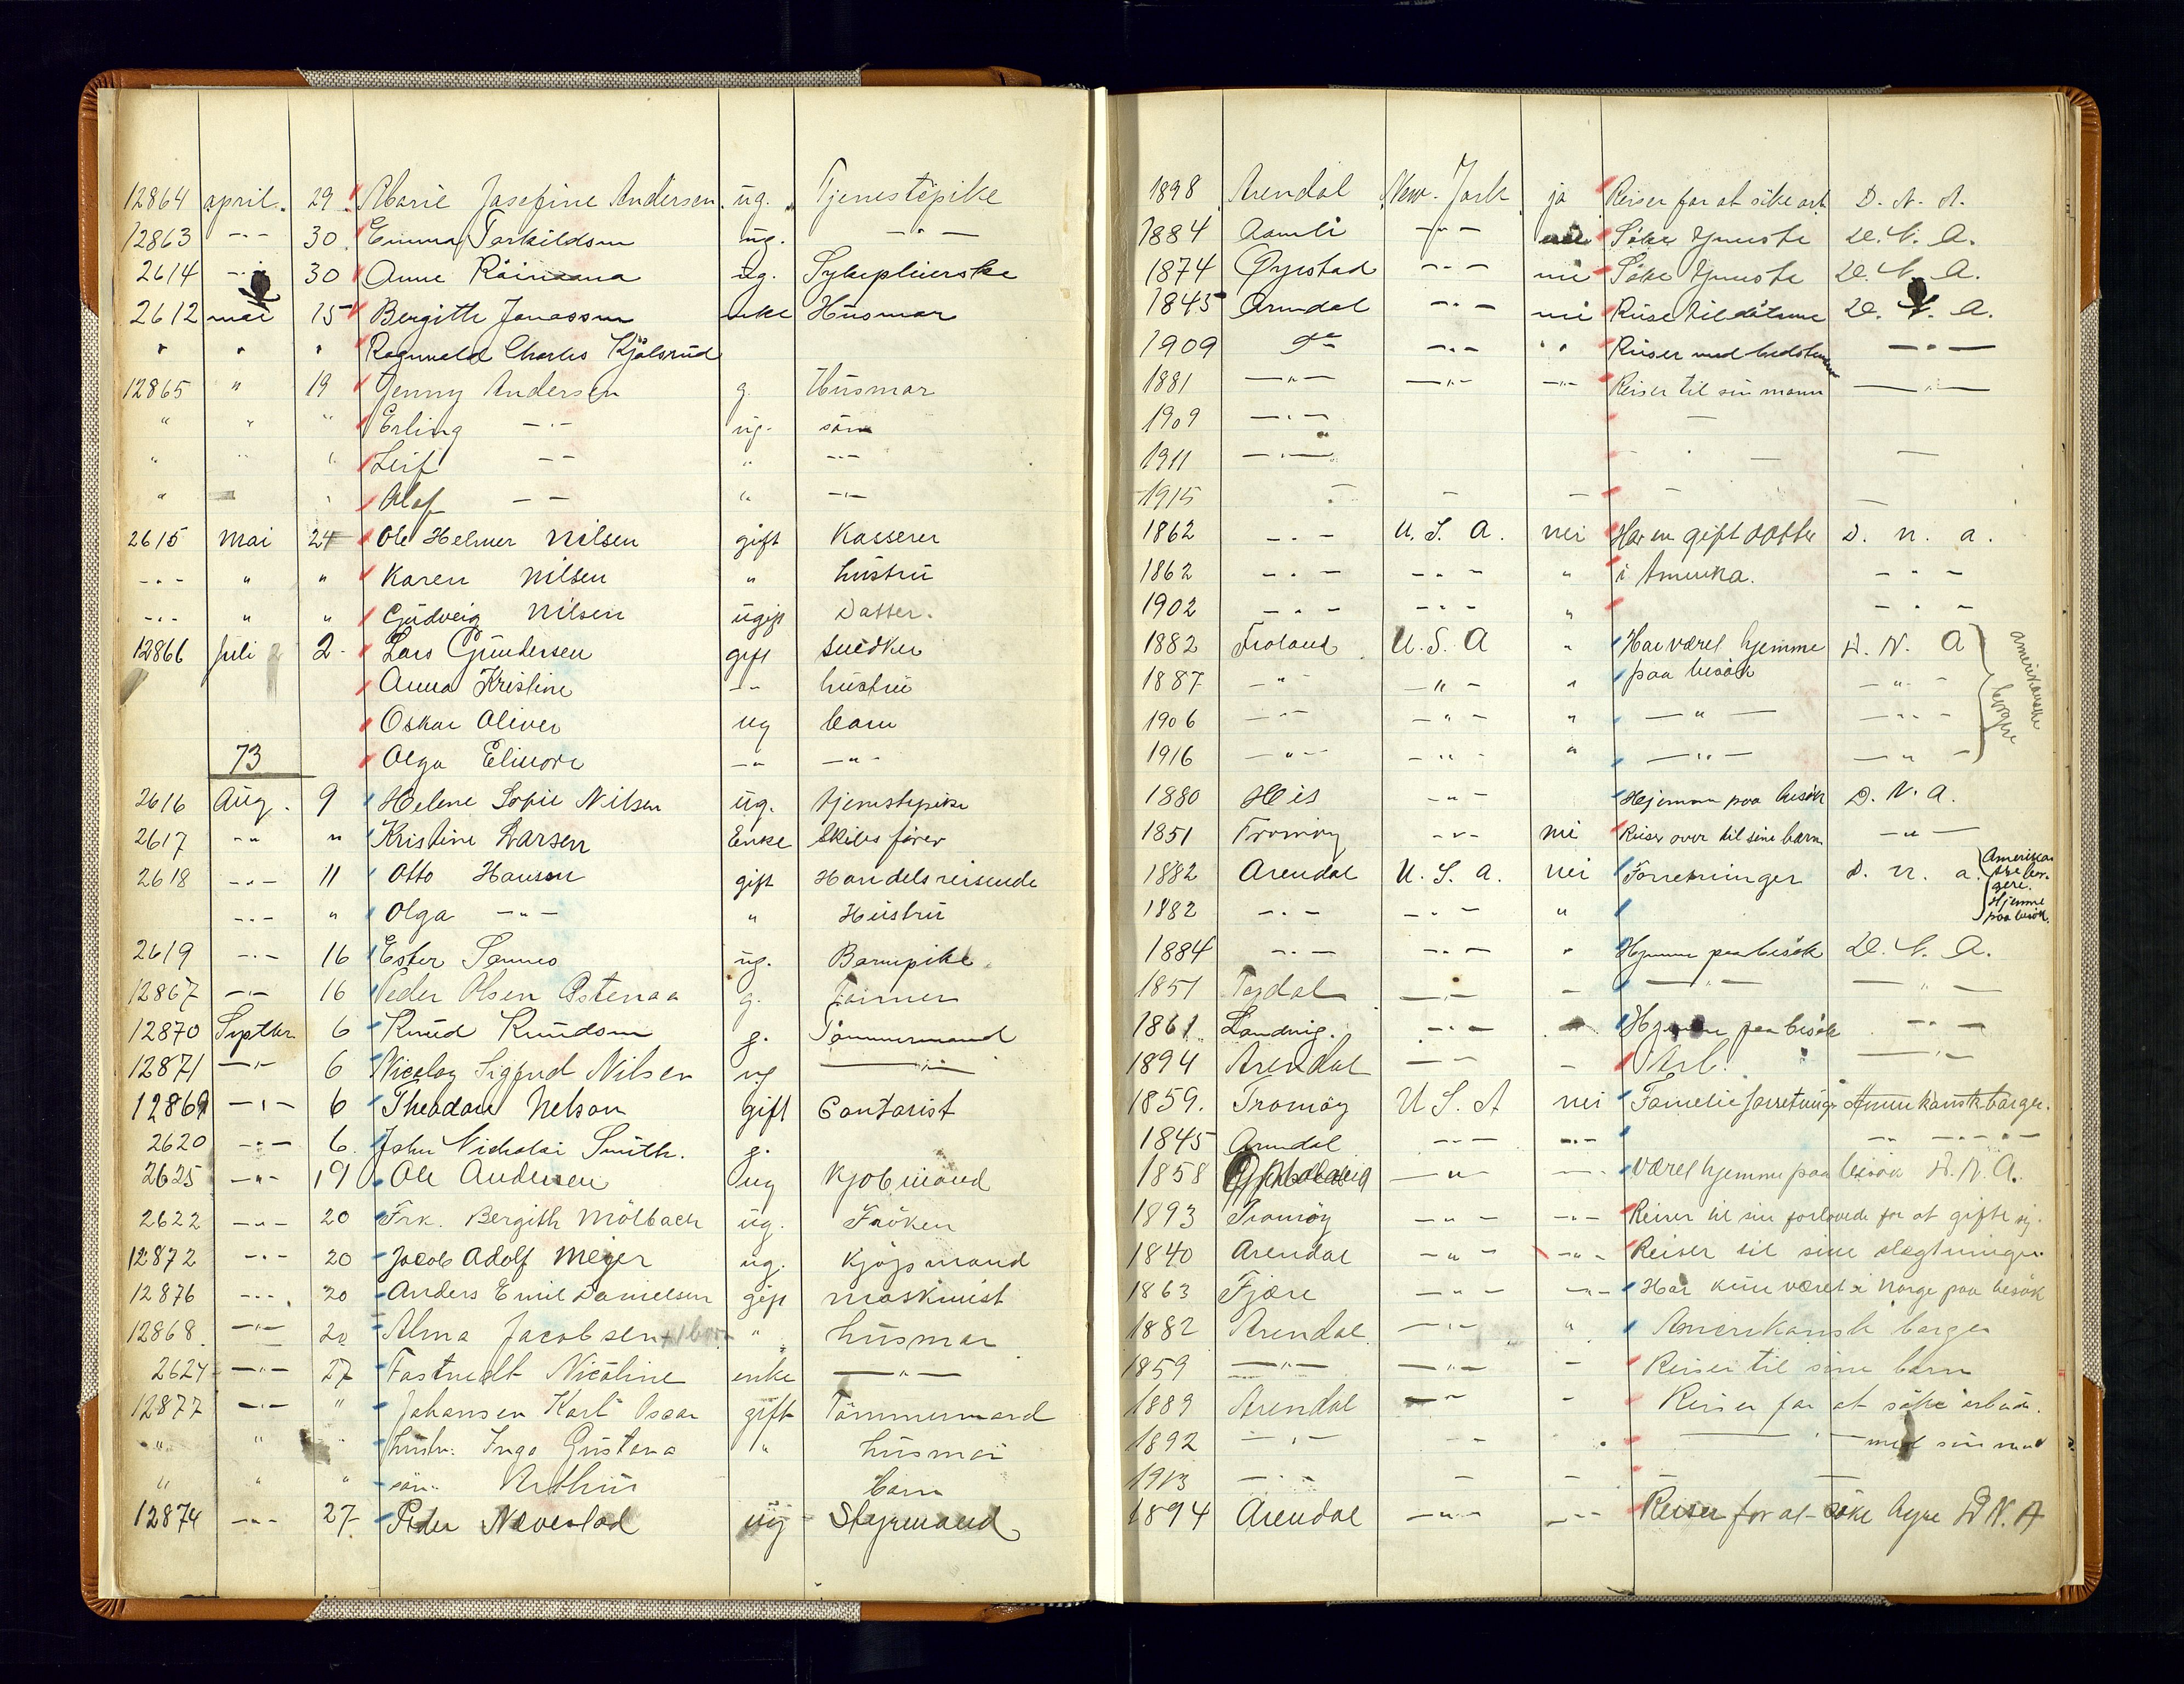 12864 april. 29 Marie Josefine Andersen ug. Tjenestepike 1898 Arendal New-York ja Reiser for at söke arb. D. N. A.
12863 -"- 30 Emma Torkildsen ug. -"- 1884 Aamli -"- nei Söke tjeneste D. N. A.
2614 -"- 30 Anne ug. 1874 Öyestad -"- nei Söke tjeneste D. N. A.
2612 mai 15 Bergithe Jonassen enke Husmor 1845 Arendal -"- nei Reise til datteren D. N. A.
" " " Ragnvald Charles Kjölsrud 1909 do -"- " " Reiser med bedstemor -"-
12865 " 19 Jenny Andersen g. Husmor 1881 -"- -"- -"- Reiser til sin mann -"-
" " " Erling -"- ug. sön 1909 -"- -
" " " Leif -"- " -"- 1911 -"- - " - -
" " Olaf -"- " -"- 1915 - - - - -
2615 Mai 24 Ole Helmer Nilsen gift Kasserer 1862 -"- U. S. A. nei Har en gift datter D. n. a.
-"- " " Karen Nilsen " hustru 1862 -"- -"- " i Amerika. -"-
-"- " " Gudveig Nilsen ugift Datter. 1902 -"- -"- " -"-
12866 Juli 2. Lars Gundersen gift snedker 1882 Froland U. S. A " Har været hjemme D. N. A
Anna Kristine -"- hustru 1887 -"- -"- " paa besök -"- amerikanske
Oskar Oliver ug barn 1906 -"- -"- " -"- -"- borgere
73 Olga Elinore -"- -"- 1916 -"- -"- " -"- -"-
2616 Aug. 9 Helene Sofie Nilsen ug. tjenestepike 1880 His -"- Hjemme paa besök D. N. A.
2617 -"- " Kristine Larsen Enke Skibsförer 1851 Tromöy -"- nei Reiser over til sine barn -"-
2618 -"- 11 Otto Hansen gift Handelsreisende 1882 Arendal U. S. A. nei Forretninger D. n. a. Amerikan
ske bor-
gere.
Hjemme
paa besök.
-"- " Olga -"- " Hustru 1882 -"- -"- "
2619 -"- 16 Ester ug. Barnepike 1884 -"- -"- " Hjemme paa besök D. N. A.
12867 -"- 16 Peder Olsen Østenaa g. Farmer 1851 -"- - -"- -"-
12870 Septbr 6 Knud Knudsen g. Tömmermand 1861 Landvig. -"- Hjemme paa besök -"-
12871 -"- 6 Nicolay Sigfred Nilsen ug -"- 1894 Arendal -"- - Arb. -"-
12869 -"- 6 Theodore Nelson gift Contorist 1859. Tromöy U. S. A nei Familie forretninger Amerikansk borger.
2620 -"- 6. John Nicholai Smith. g. 1845 Arendal -"- -"- -"-
2625 -"- 19 Ole Andersen ug Kjöbmand 1858 -"- -"- været hjemme paa besök D. N. A.
2622 -"- 20 Frk. Bergith Mölbach ug. Fröken 1893 Tromöy -"- -"- Reiser til sin forlovede for at gifte sig.
12872 -"- 20 Jacob Adolf Meyer ug. Kjöpmand 1840 Arendal -"- -"- Reiser til sine slegtninger
12876 -"- 20 Anders Emil Danielsen gift maskinist 1863 Fjære -"- -"- Har kun været i Norge paa besök
12868 -"- 20 Alma Jacobsen + 1 barn " husmor 1882 Arendal -"- " Amerikansk borger
2624 -"- 27 Fastnedt Nicoline enke -"- 1859 -"- -"- - Reiser til sine barn
12877 -"- " Johansen Karl Oscar gift Tömmermand 1889 Arendal -"- - Reiser for at söke arbeide.
" " " hustr. Inga Gustava " husmor 1892 -"- - -"- med sin mand
" " " sön. Arthur barn 1913 -"- - - -
12874 -"- 27 Peder Nævestad ug Styrmand 1894 Arendal -"- -"- Reiser for at söke hyre D. N. A